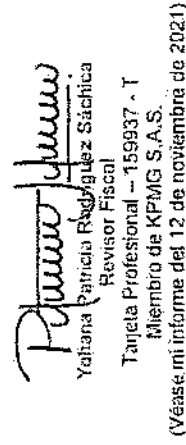 Yohana Patricia Rodríguez Sáchica
Revisor Fiscal
Tarjeta Profesional – 159937 - T
Miembro de KPMG S.A.S.
(Véase mi informe del 12 de noviembre de 2021)